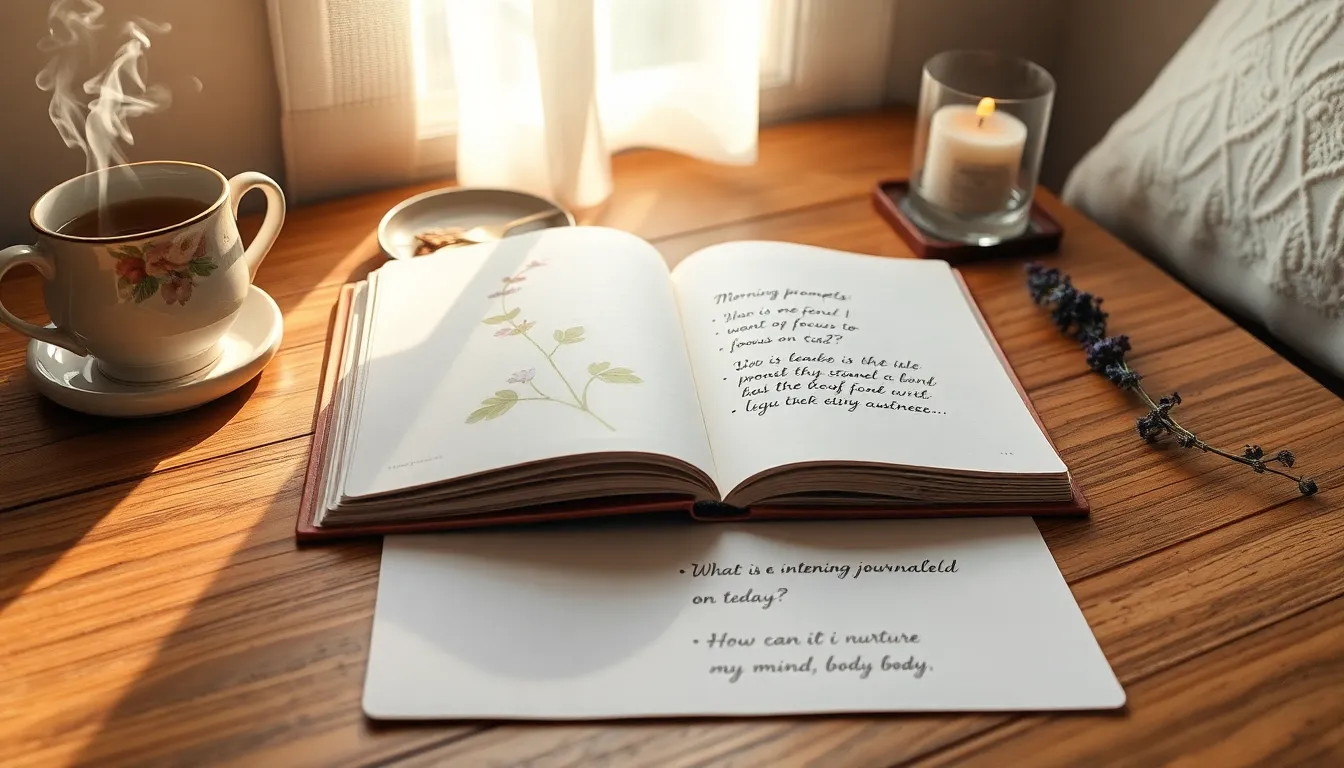 Morning prompts:
• How is one fend I
• want of focus to
• focus on and?
How is leabe is the ide
• prompt thy stumed a band,
but the keaf fond wvit.
• legu tack eluy austnese...
• What is e intening journaleld
on teday?
• How can it i nurture
my mind, body body.